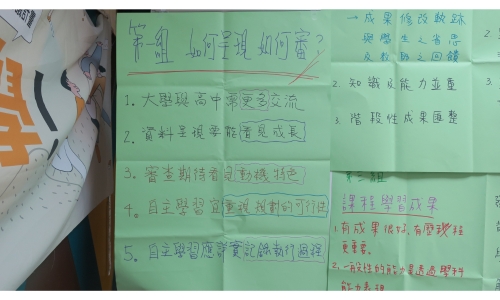 第一組 如何呈現 如何審?
1. 大學與高中需更多交流
2. 資料呈現要能看見成長
3. 審查期待看見動機、特色
4. 自主學習宜重視規劃的可行性
5. 自主學習應詳實記錄執行過程
→成果修改軌跡
與學生之省思
及教師之回饋
2. 知識及能力並重
3. 階段性成果匯整
第二組
課程學習成果
1. 有成果很好,有歷程
更重要。
2. 一般性的能力是透過學科